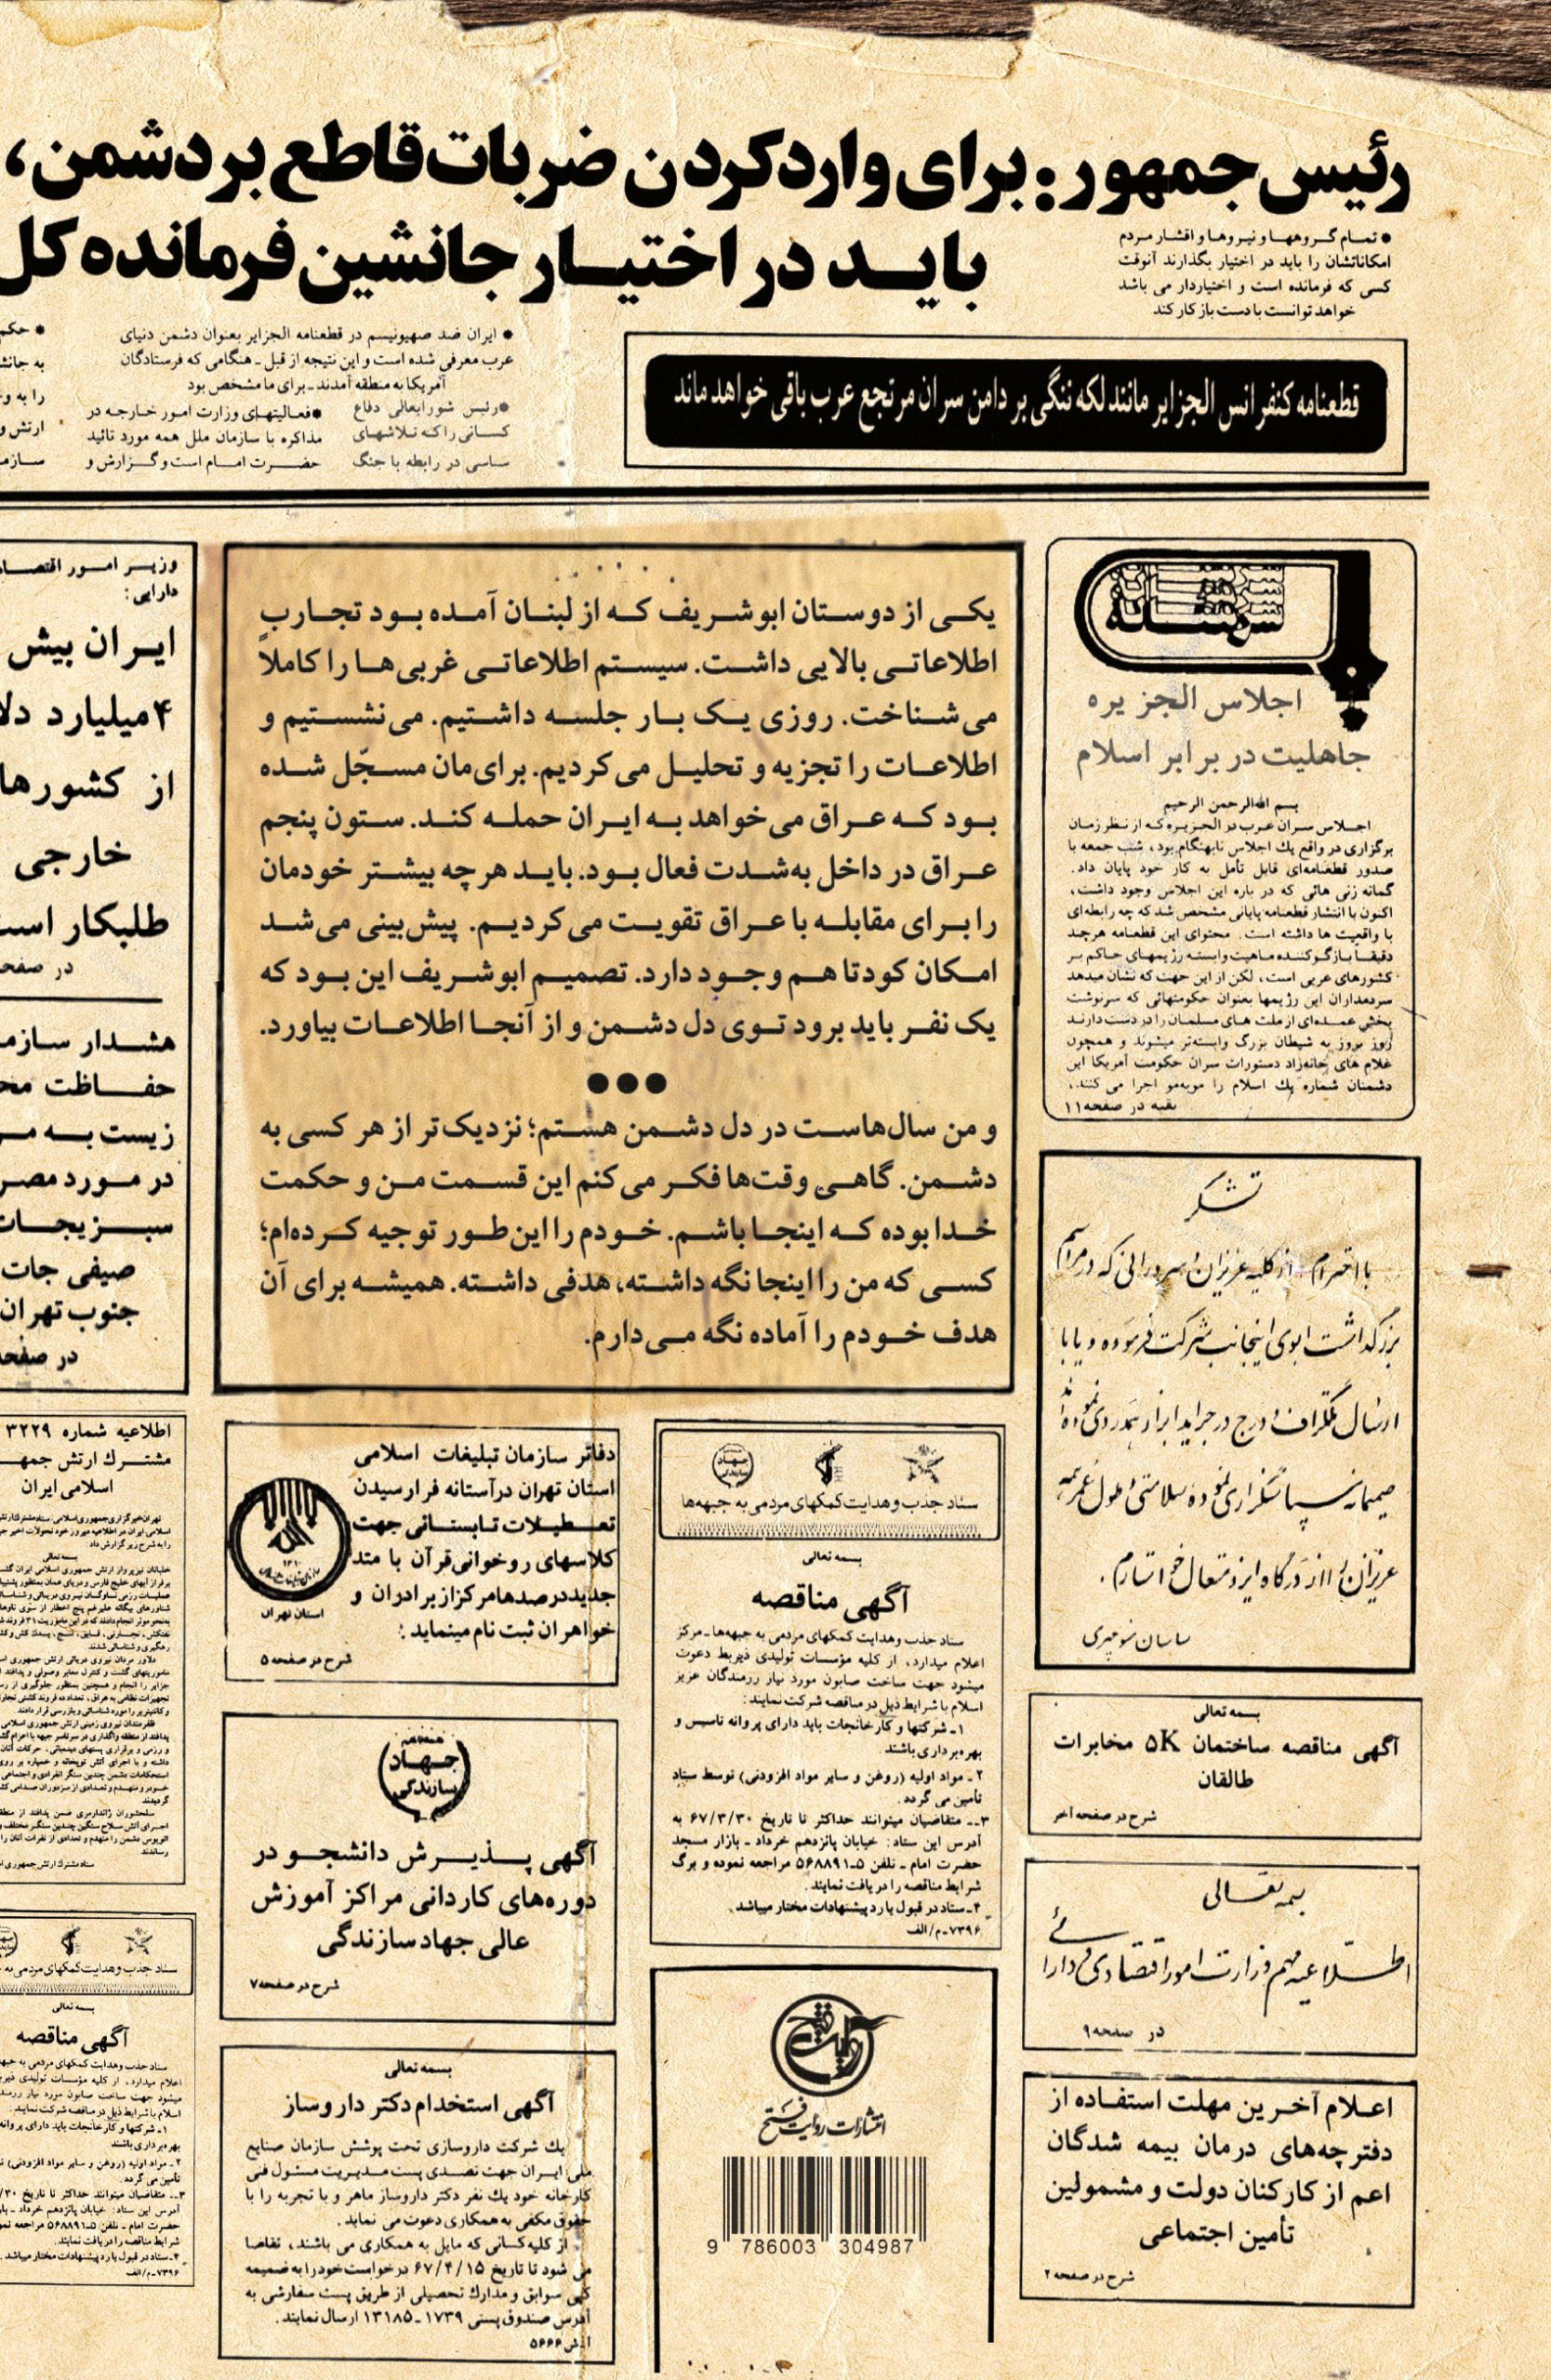 رئیس جمهور: برای وارد کردن ضربات قاطع بر دشمن،
باید در اختیار جانشین فرمانده کل
● تمام گروهها و نیروها و اقشار مردم
امکاناتشان را باید در اختیار بگذارند آنوقت
کسی که فرمانده است و اختیاردار می باشد
خواهد توانست با دست باز کار کند
قطعنامه کنفرانس الجزایر مانند لکه ننگی بر دامن سران مرتجع عرب باقی خواهد ماند
● ایران ضد صهیونیسم در قطعنامه الجزایر بعنوان دشمن دنیای
عرب معرفی شده است و این نتیجه از قبل ـ هنگامی که فرستادگان
آمریکا به منطقه آمدند ـ برای ما مشخص بود
● رئیس شورایعالی دفاع
کسانی را که تلاشهای
سیاسی در رابطه با جنگ
● فعالیتهای وزارت امور خارجه در
مذاکره با سازمان ملل همه مورد تائید
حضرت امام است و گزارش و
● حکم
را به
ارتش و
سرمقاله
اجلاس الجزیره
جاهلیت در برابر اسلام
بسم الله الرحمن الرحیم
اجلاس سران عرب در الجزیره که از نظر زمان
برگزاری در واقع یك اجلاس نابهنگام بود، شب جمعه با
صدور قطعنامه‌ای قابل تأمل به کار خود پایان داد.
گمانه زنی هائی که در باره این اجلاس وجود داشت،
اکنون با انتشار قطعنامه پایانی مشخص شد که چه رابطه‌ای
با واقعیت ها داشته است. محتوای این قطعنامه هرچند
دقیقا بازگوکننده ماهیت وابسته رژیمهای حاکم بر
کشورهای عربی است، لکن از این جهت که نشان میدهد
سردمداران این رژیمها بعنوان حکومتهائی که سرنوشت
بخش عمده‌ای از ملت های مسلمان را در دست دارند
روز بروز به شیطان بزرگ وابسته‌تر میشوند و همچون
غلام های خانه‌زاد دستورات سران حکومت آمریکا این
دشمنان شماره یك اسلام را موبه‌مو اجرا می کنند،
بقیه در صفحه ۱۱
یکی از دوستان ابوشریف که از لبنان آمده بود تجارب
اطلاعاتی بالایی داشت. سیستم اطلاعاتی غربی‌ها را کاملاً
می‌شناخت. روزی یک بار جلسه داشتیم. می‌نشستیم و
اطلاعات را تجزیه و تحلیل می‌کردیم. برای‌مان مسجّل شده
بود که عراق می‌خواهد به ایران حمله کند. ستون پنجم
عراق در داخل به‌شدت فعال بود. باید هر چه بیشتر خودمان
را برای مقابله با عراق تقویت می‌کردیم. پیش‌بینی می‌شد
امکان کودتا هم وجود دارد. تصمیم ابوشریف این بود که
یک نفر باید برود توی دل دشمن و از آنجا اطلاعات بیاورد.
●●●
و من سال‌هاست در دل دشمن هستم؛ نزدیک‌تر از هر کسی به
دشمن. گاهی وقت‌ها فکر می‌کنم این قسمت من و حکمت
خدا بوده که اینجا باشم. خودم را این‌طور توجیه کرده‌ام؛
کسی که من را اینجا نگه داشته، هدفی داشته. همیشه برای آن
هدف خودم را آماده نگه می‌دارم.
وزیر امور
دارایی:
ایران بیش
۴ میلیارد
از کشورها
خارجی
طلبکار است
در صفحه
هشدار
حفاظت
زیست به
در مورد
سبزیجات
صیفی جات
جنوب تهران
در صفحه
تشکر
با احترام از کلیه عزیزان و سرورانی که در مراسم
بزرگداشت ابوی اینجانب شرکت فرموده و یا با
ارسال تلگراف و درج در جراید ابراز همدردی نموده‌اند
صمیمانه سپاسگزاری نموده سلامتی و طول عمر همه
عزیزان را از درگاه ایزد متعال خواستارم.
ساسان منوچهری
بسمه تعالی
آگهی مناقصه ساختمان ۵K مخابرات
طالقان
شرح در صفحه آخر
بسمه تعالی
اطلاعیه مهم وزارت امور اقتصادی و دارائی
در صفحه ۹
اعلام آخرین مهلت استفاده از
دفترچه‌های درمان بیمه شدگان
اعم از کارکنان دولت و مشمولین
تأمین اجتماعی
شرح در صفحه ۲
جهاد سازندگی
ستاد جذب و هدایت کمکهای مردمی به جبهه‌ها
بسمه تعالی
آگهی مناقصه
ستاد جذب و هدایت کمکهای مردمی به جبهه‌ها ـ مرکز
اعلام میدارد، از کلیه مؤسسات تولیدی ذیربط دعوت
میشود جهت ساخت صابون مورد نیاز رزمندگان عزیز
اسلام با شرایط ذیل در مناقصه شرکت نمایند:
۱ـ شرکتها و کارخانجات باید دارای پروانه تاسیس و
بهره‌برداری باشند.
۲ـ مواد اولیه (روغن و سایر مواد افزودنی) توسط ستاد
تأمین می گردد.
۳ـ متقاضیان میتوانند حداکثر تا تاریخ ۶۷/۳/۳۰ به
آدرس این ستاد: خیابان پانزدهم خرداد ـ بازار مسجد
حضرت امام ـ تلفن ۵ـ۵۶۸۸۹۱ مراجعه نموده و برگ
شرایط مناقصه را دریافت نمایند.
۴ـ ستاد در قبول یا رد پیشنهادات مختار میباشد.
۷۳۹۶ـ م/الف
دفاتر سازمان تبلیغات اسلامی
استان تهران در آستانه فرارسیدن
تعطیلات تابستانی جهت
کلاسهای روخوانی قرآن با متد
جدید در صدها مرکز از برادران و
خواهران ثبت نام مینماید:
شرح در صفحه ۵
استان تهران
جهاد
سازندگی
آگهی پذیرش دانشجو در
دوره‌های کاردانی مراکز آموزش
عالی جهاد سازندگی
شرح در صفحه ۷
بسمه تعالی
آگهی استخدام دکتر داروساز
یك شرکت داروسازی تحت پوشش سازمان صنایع
ملی ایران جهت تصدی پست مدیریت مسئول فنی
کارخانه خود یك نفر دکتر داروساز ماهر و با تجربه را با
حقوق مکفی به همکاری دعوت می نماید.
از کلیه کسانی که مایل به همکاری می باشند، تقاضا
می شود تا تاریخ ۶۷/۴/۱۵ درخواست خود را به ضمیمه
کپی سوابق و مدارك تحصیلی از طریق پست سفارشی به
آدرس صندوق پستی ۱۷۳۹ ـ ۱۳۱۸۵ ارسال نمایند.
روایت فتح
انتشارات روایت فتح
9 786003 304987
اطلاعیه شماره ۳۲۲۹
مشترك ارتش
اسلامی ایران
بسمه تعالی
ستاد جذب و هدایت کمکهای مردمی به
بسمه تعالی
آگهی مناقصه